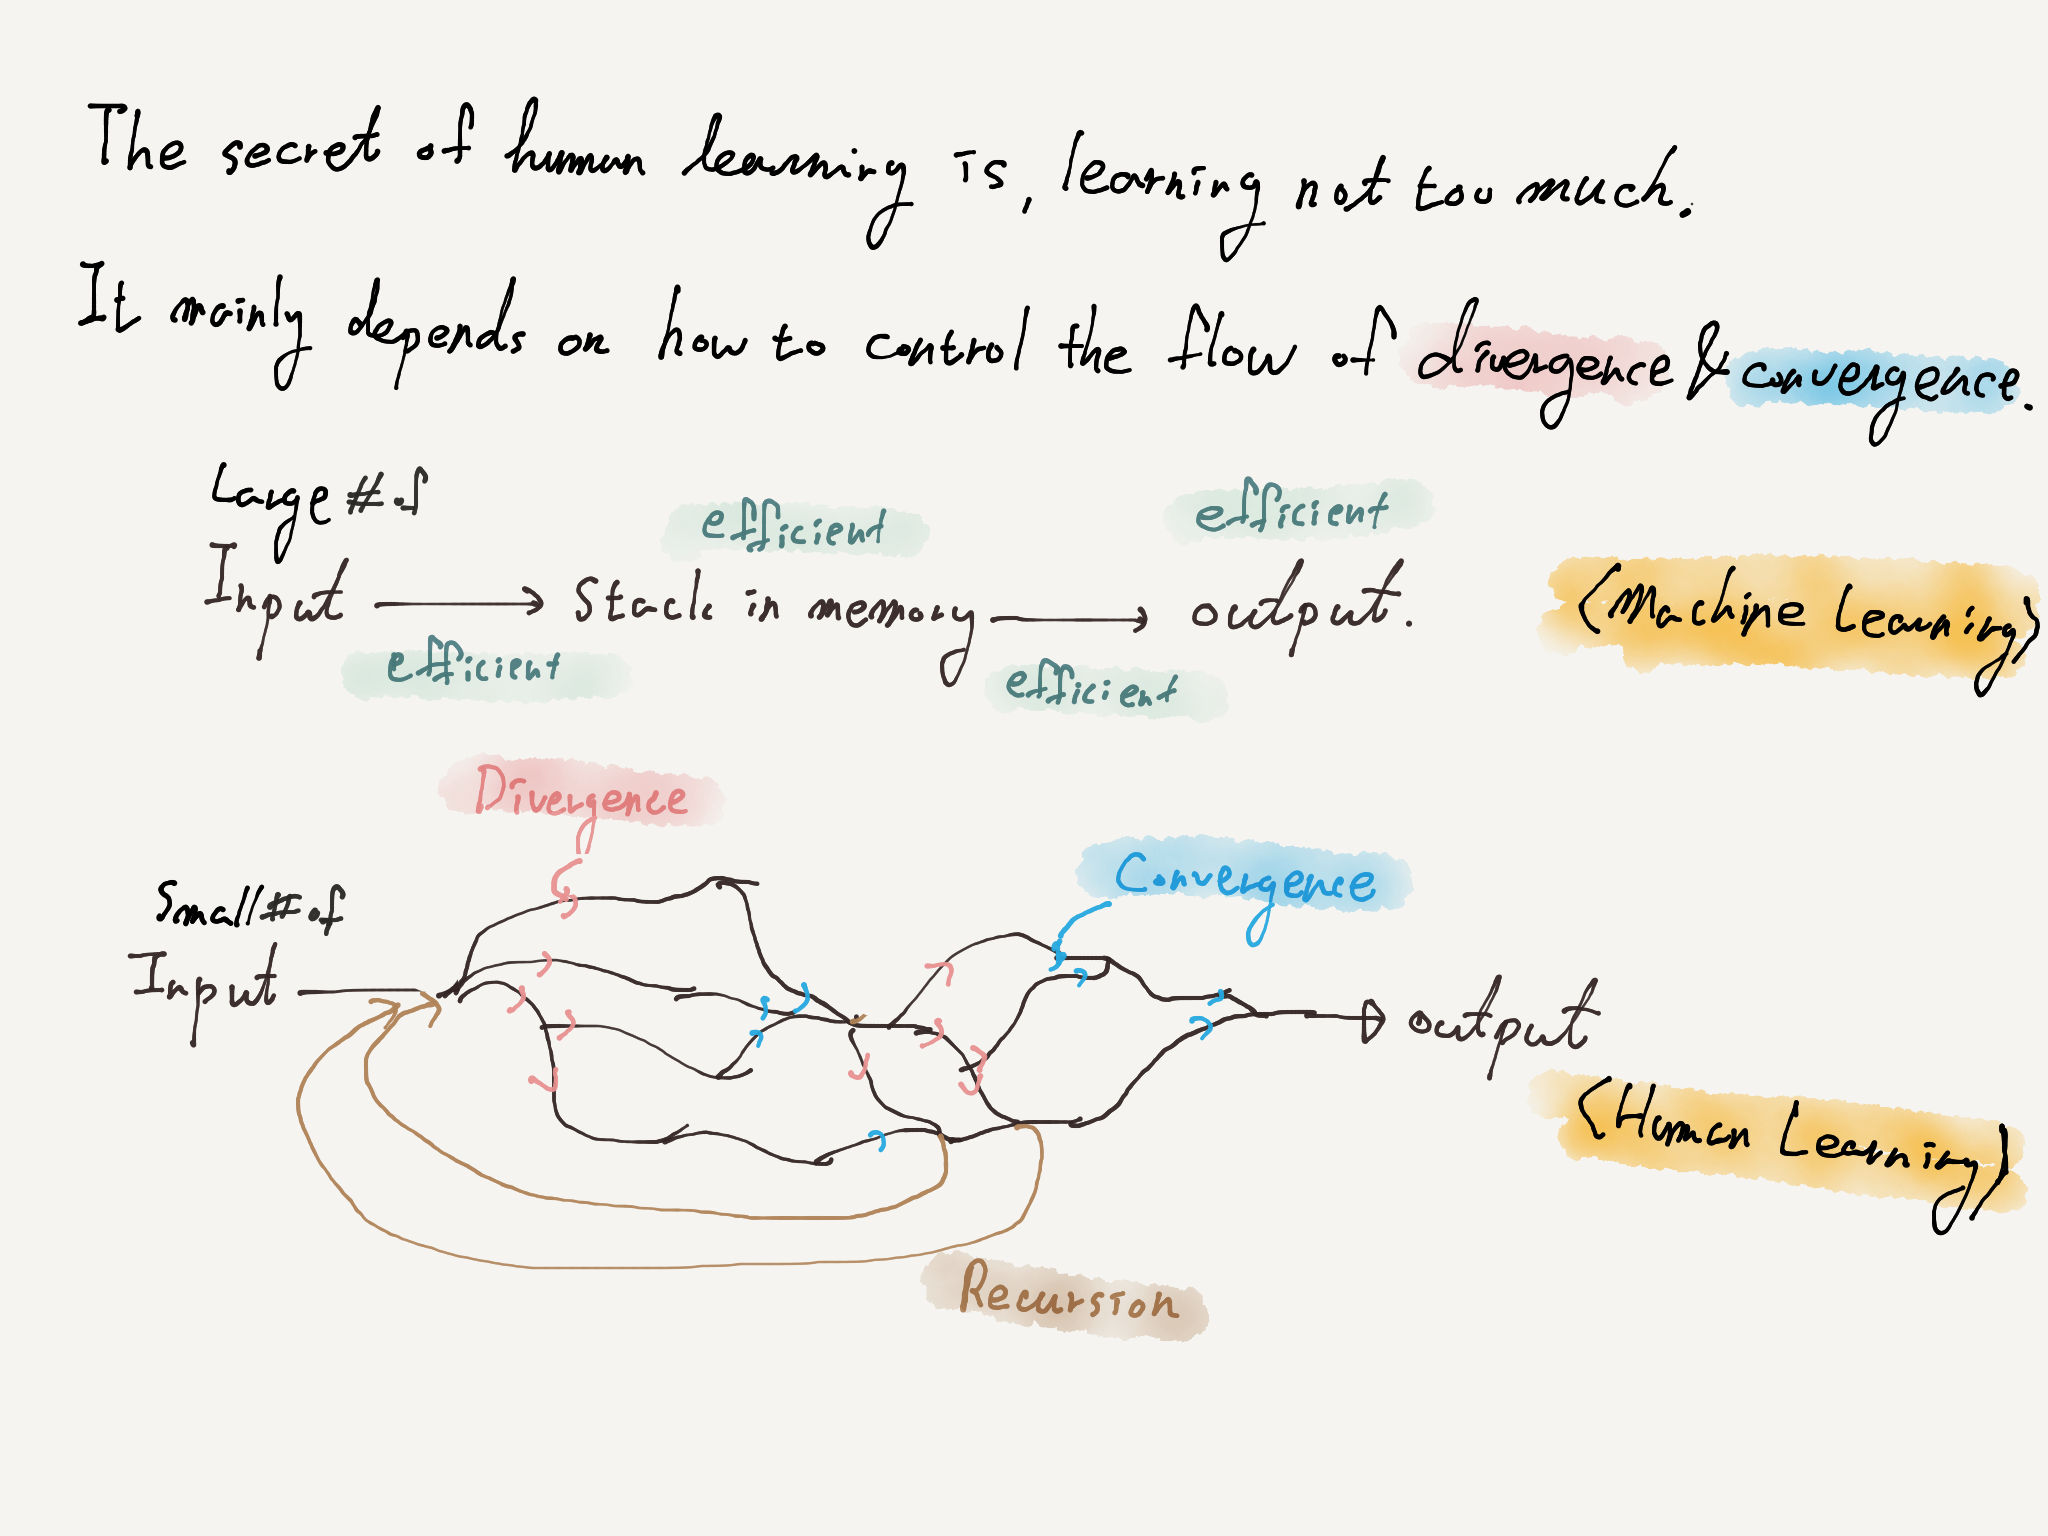 The secret of human learning is, learning not too much.
It mainly depends on how to control the flow of divergence & convergence.
Large # of
efficient
efficient
Input
Stack in memory
output.
(Machine Learning)
efficient
efficient
Divergence
Convergence
Small # of
Input
output
(Human Learning)
Recursion